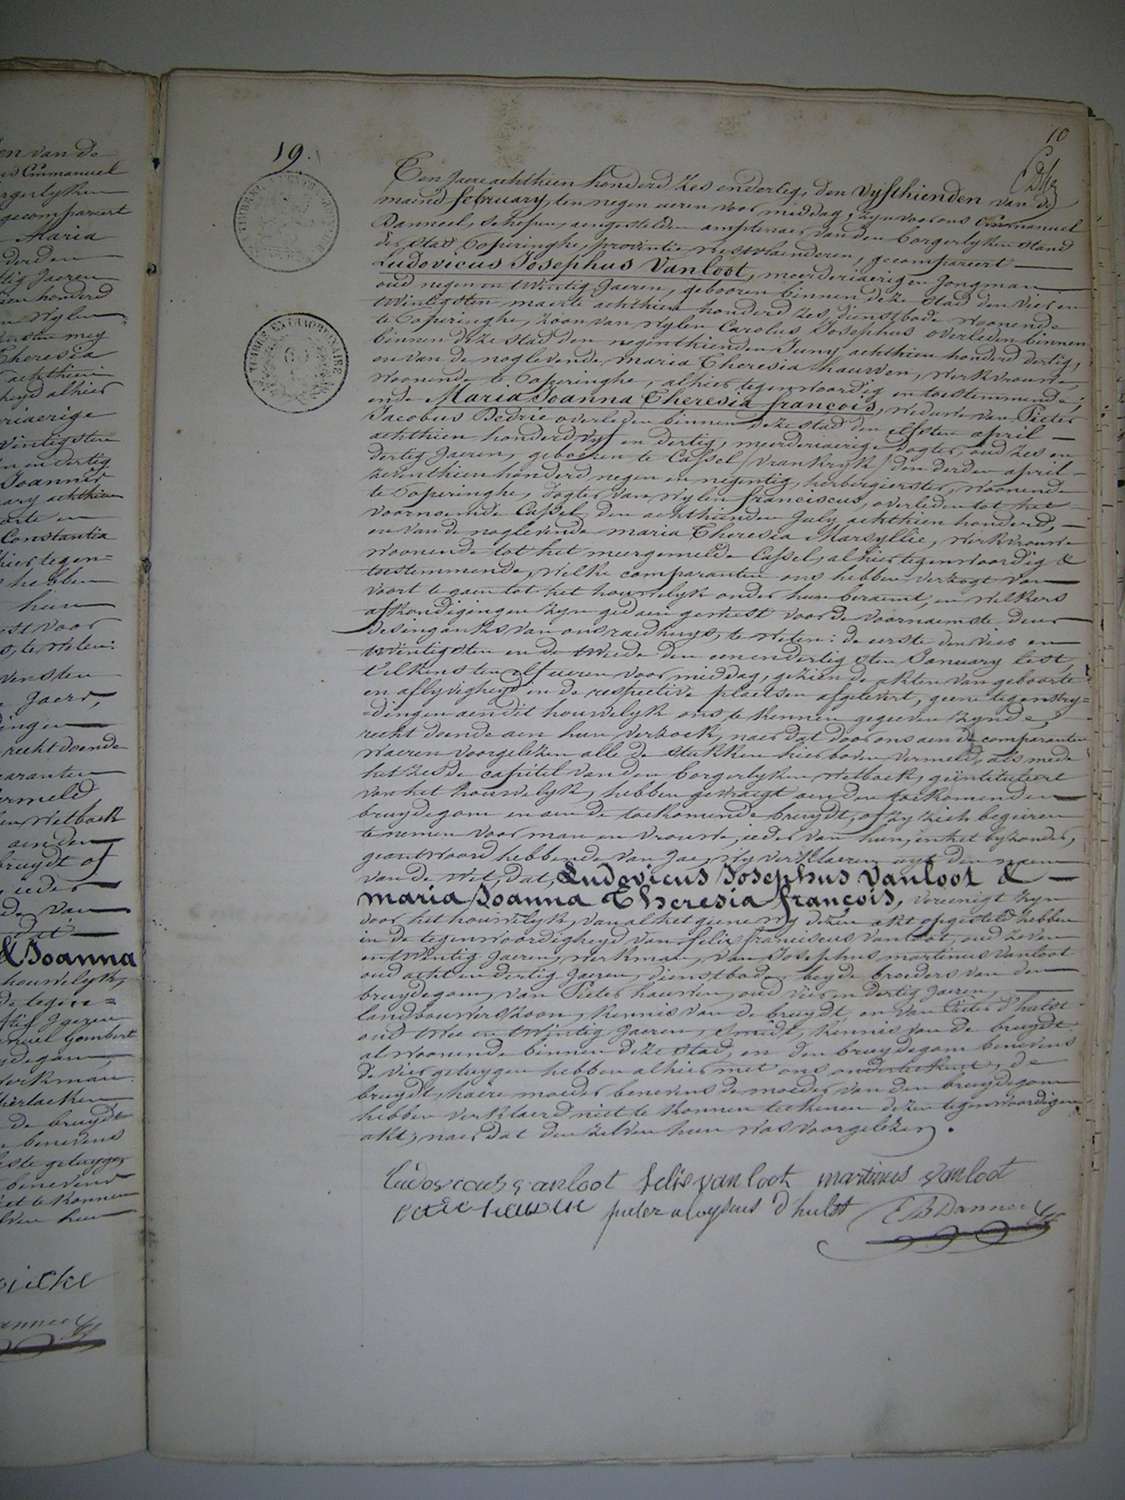 10
19.
Den jaere achthien honderd zes en dertig, den vyfthienden van de
maend february, ten negen ueren voor middag, zyn voor ons Emmanuel
Danneel, schepen, aengestelden amptenaer van den borgerlyken stand
der stad Poperinghe, provintie westvlaenderen, gecompareert
Ludovicus Josephus Vanloot, meerderiaerigen Jongman
oud negen en twintig Jaeren, gebooren binnen deze stad den vier en
twintigsten maerte achthien honderd zes, dienstbode woonende
te Poperinghe, zoon van wylen Carolus Josephus overleden binnen
binnen deze stad den negenthienden Juny achthien honderd dertig,
en van de noglevende maria Theresia hauwen, werkvrouwe
woonende te Poperinghe, alhier tegenwoordig en toestemmende;
ende Maria Joanna Theresia françois, weduwe van Pieter
Jacobus Dedrie overleden binnen deze stad den elfsten april
achthien honderd vyf en dertig, meerderiaerige dogter, oud zes en
dertig Jaeren, gebooren te Cassel (vrankryk) den derden april
zeventhien honderd negen en negentig, herbergierster, woonende
te Poperinghe, dogter van wylen franciscus, overleden tot het
voornoemde Cassel den achthienden July achthien honderd,
en van de noglevende maria Theresia Marsyllie, werkvrouwe
woonende tot het meergemelde Cassel, alhier tegenwoordig &
toestemmende, welke comparanten ons hebben verzogt van
voort te gaen tot het houwelyk onder hun beraemt, en welkers
afkondigingen zyn gedaen geweest voor de voornaemste deur
des ingangks van ons raedhuys, te weten: de eerste den vier en
twintigsten en de tweede den eenendertigsten January lest,
telkens ten elf ueren voor middag, gezien de akten van geboorte
en aflyvigheyd en de respective plaetsen afgelevert, geene tegenstry=
=dingen aen dit houwelyk ons te kennen gegeeven zynde,
recht doende aen hun verzoek, naer dat door ons aen de comparanten
waeren voorgelezen alle de stukken hier boven vermeld, als mede
het zesde capitel van den borgerlyken wetboek, geïntituleert
van het houwelyk, hebben gevraegt aen den toekomenden
bruydegom en aen de toekomende bruydt, of zy zich begeiren
te nemen voor man en vrouwe, ieder van hun, in het byzonder,
geantwoord hebbende van jae, wy verklaeren uyt den naem
van de wet, dat, Ludovicus Josephus Vanloot &
maria Joanna Theresia françois, vereenigt zyn
door het houwelyk, van al het gene wy dezen akt opgesteld hebben
in de tegenwoordigheyd van felix franciscus vanloot, oud zeven
en twintig Jaeren, werkman, van Josephus martinus vanloot
oud acht en dertig Jaeren, dienstbode, beyde broeders van den
bruydegom, van Pieter hauwen, oud vier en dertig Jaeren,
landbouwers zoon, kennis van de bruydt, en van Pieter d'hulst
oud twee en twintig Jaeren, smidt, kennis van de bruydt
al woonende binnen deze stad, en den bruydegom benevens
de vier getuygen hebben alhier met ons onderteekent, de
bruydt, haere moeder benevens de moeder van den bruydegom
hebben verklaerd niet te konnen teekenen dezen tegenwoordigen
akt, naer dat den zelven hun was voorgelezen.
Ludovicus vanloot felix van loot martinus vanloot
pieter hauwen pieter aloysius d'hulst E B Danneel
en van de
Maria
Theresia
achthien
Constantia
hebben
& Joanna
houwelyk,
de bruydt
benevens